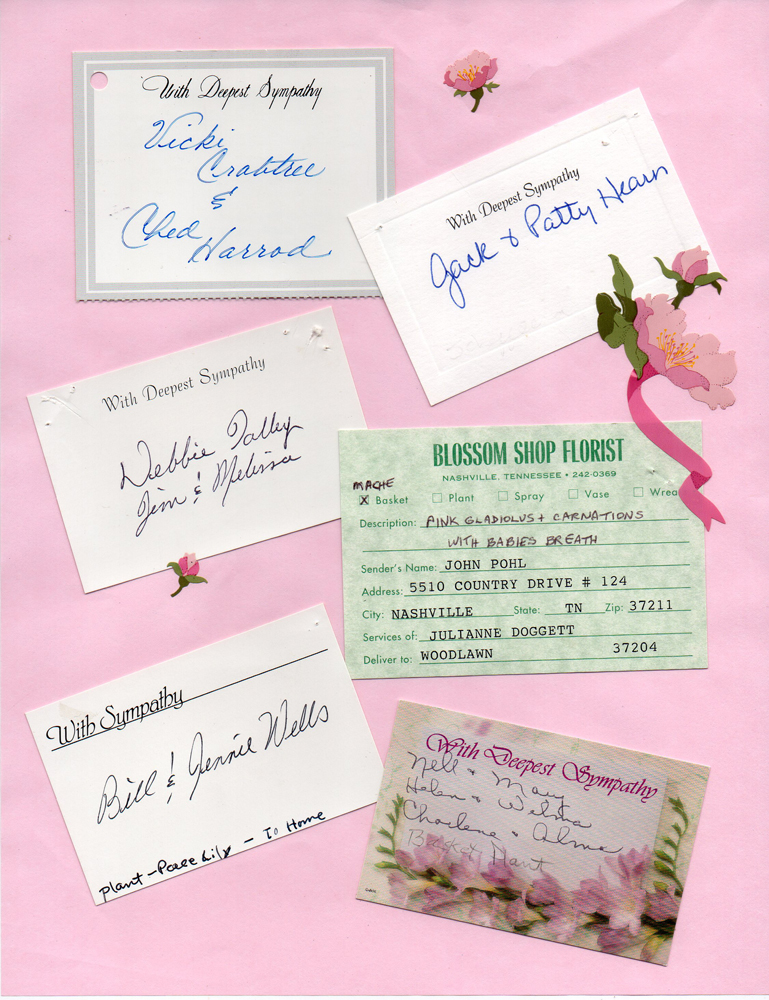 With Deepest Sympathy
Vicki
Crabtree
&
Ched
Harrod
With Deepest Sympathy
Jack & Patty Hearn
With Deepest Sympathy
Debbie Talley
Jim & Melissa
BLOSSOM SHOP FLORIST
NASHVILLE, TENNESSEE • 242-0369
MACHE
X Basket Plant Spray Vase Wrea
Description: PINK GLADIOLUS + CARNATIONS
WITH BABIES BREATH
Sender's Name: JOHN POHL
Address: 5510 COUNTRY DRIVE # 124
City: NASHVILLE State: TN Zip: 37211
Services of: JULIANNE DOGGETT
Deliver to: WOODLAWN 37204
With Sympathy
Bill & Jennie Wells
plant - Peace Lily - To Home
With Deepest Sympathy
Nell & Mary
Helen & Wilma
Charlene & Alma
Plant